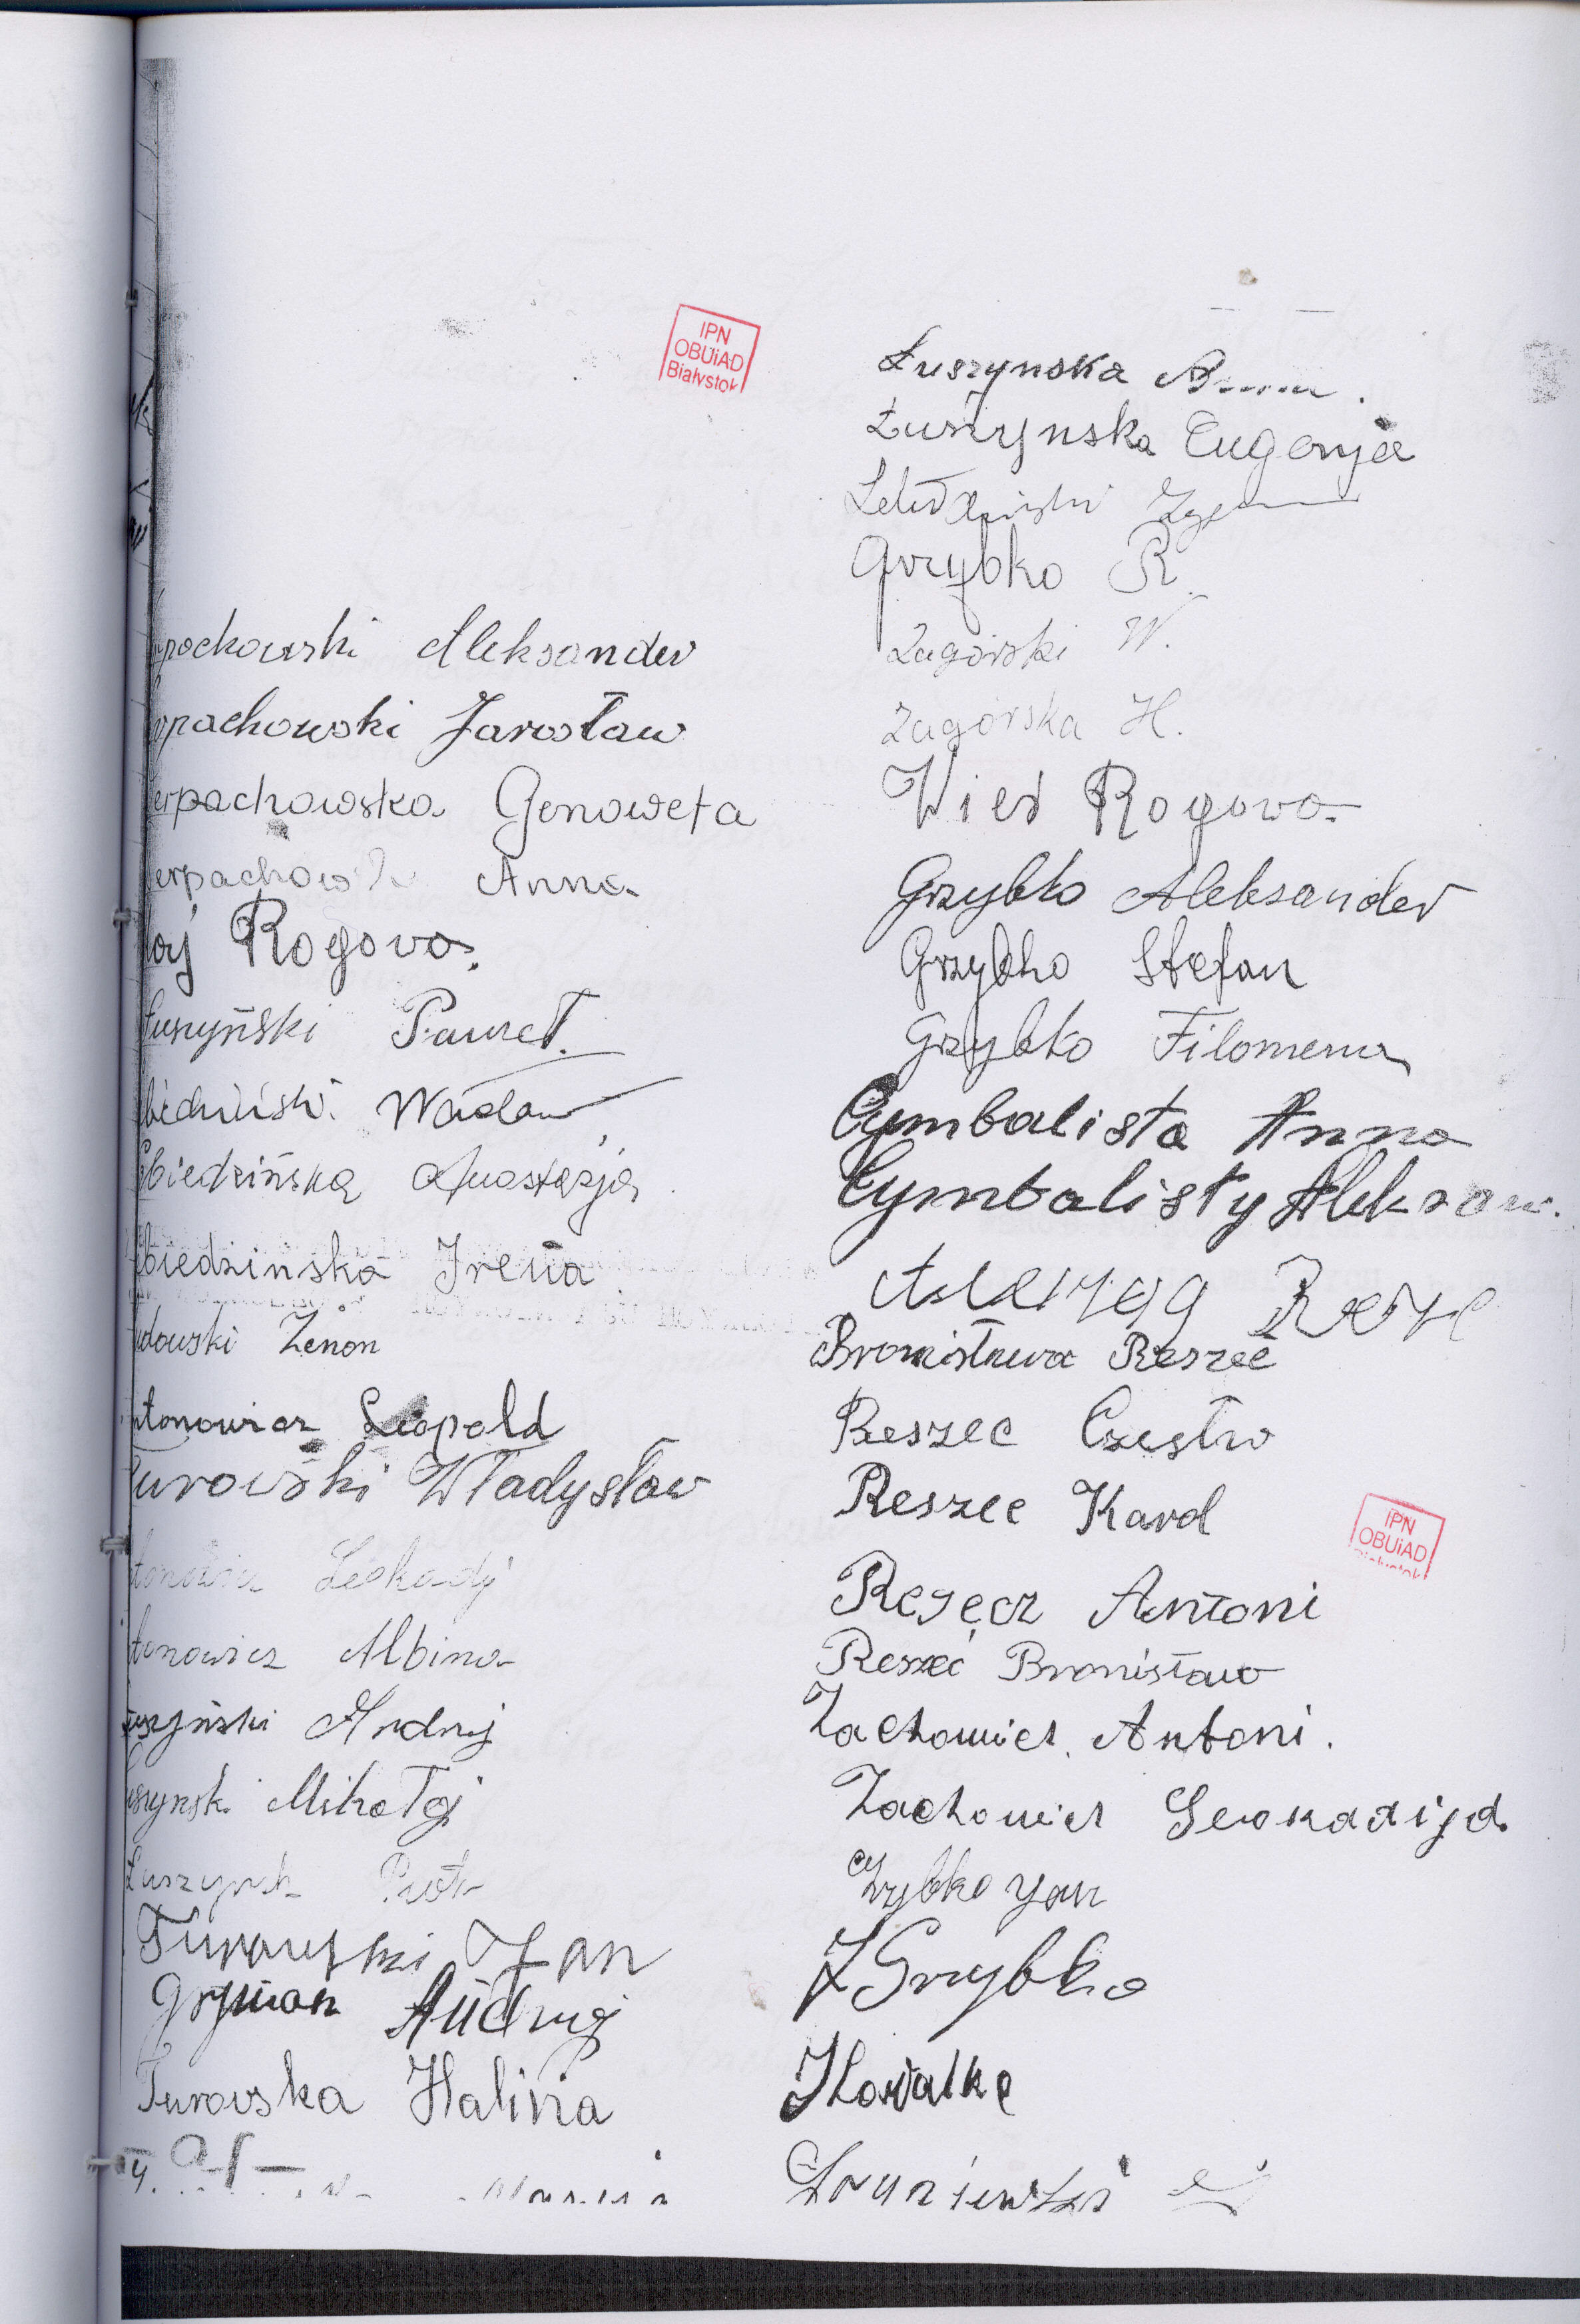 IPN
OBUiAD
Białystok
pochowski Aleksander
pachowski Jarosław
erpachowska Genowefa
erpachow Anna
Rogovo.
Łuszyński Paweł.
Wacław
biedzińska Anastazja
biedzińska Irena
dowski Zenon
ntonowicz Leopold
urowski Władysław
Leokadj
tonowicz Albina
uszyński Andrzej
uszynsk. Mikołaj
Łuszynsk Piotr
Turowski Jan
Gryman Andrzej
Turowska Halina
Łuszynska Anna.
Łuszynska Eugenja
Grzybko R.
Zagórski W.
Zagórska H.
Wieś Rogovo
Grzybko Aleksander
Grzybko Stefan
Grzybko Filomena
Cymbalista Anna
Cymbalisty Aleksan.
Bronisława Reszeć
Reszec Czesław
Reszec Karol
Antoni
Reszeć Bronisław
Zachowicz Antoni.
Zachowicz
Grzybko Jan
J Grzybko
IPN
OBUiAD
Białystok